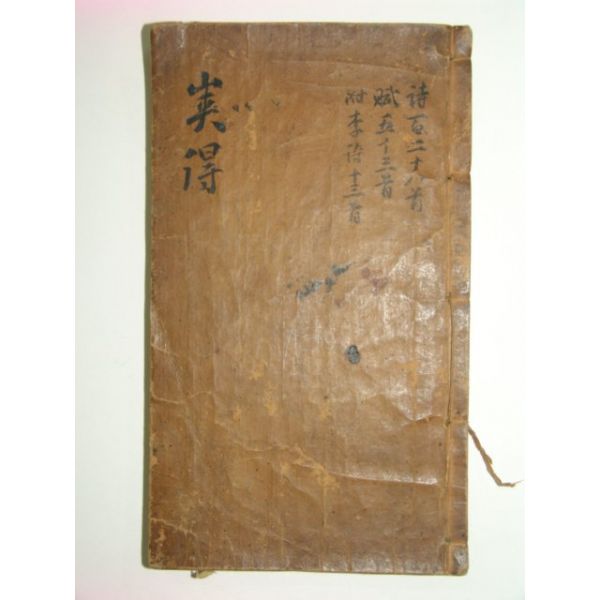 詩百二十八首
賦五十三首
附李詩十三首
得